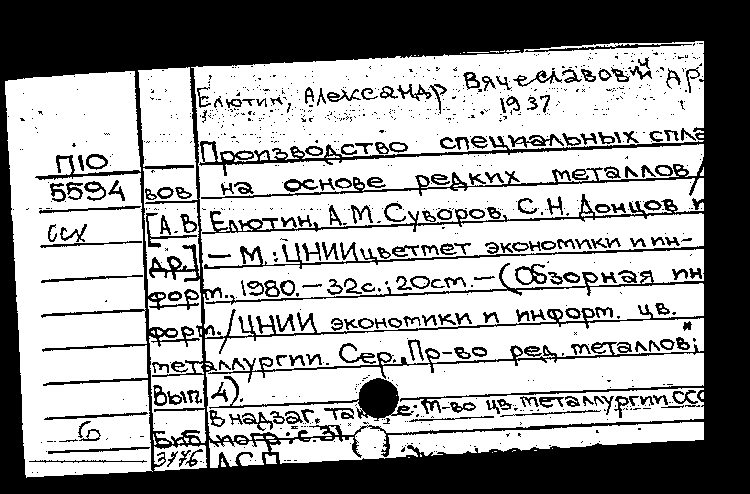 Елютин, Александр Вячеславович др.
1937
Производство специальных спла
П10
5594 вов на основе редких металлов/
ссх [А.В. Елютин, А.М. Суворов, С.Н. Донцов и
др.]. – М.: ЦНИИцветмет экономики и ин-
форм., 1980. – 32с.; 20см. – (Обзорная ин
форм./ЦНИИ экономики и информ. цв.
металлургии. Сер. „Пр-во ред. металлов";
Вып. 4).
В надзаг. также: М-во цв. металлургии СССР
6 Библиогр.: с. 31.
3776